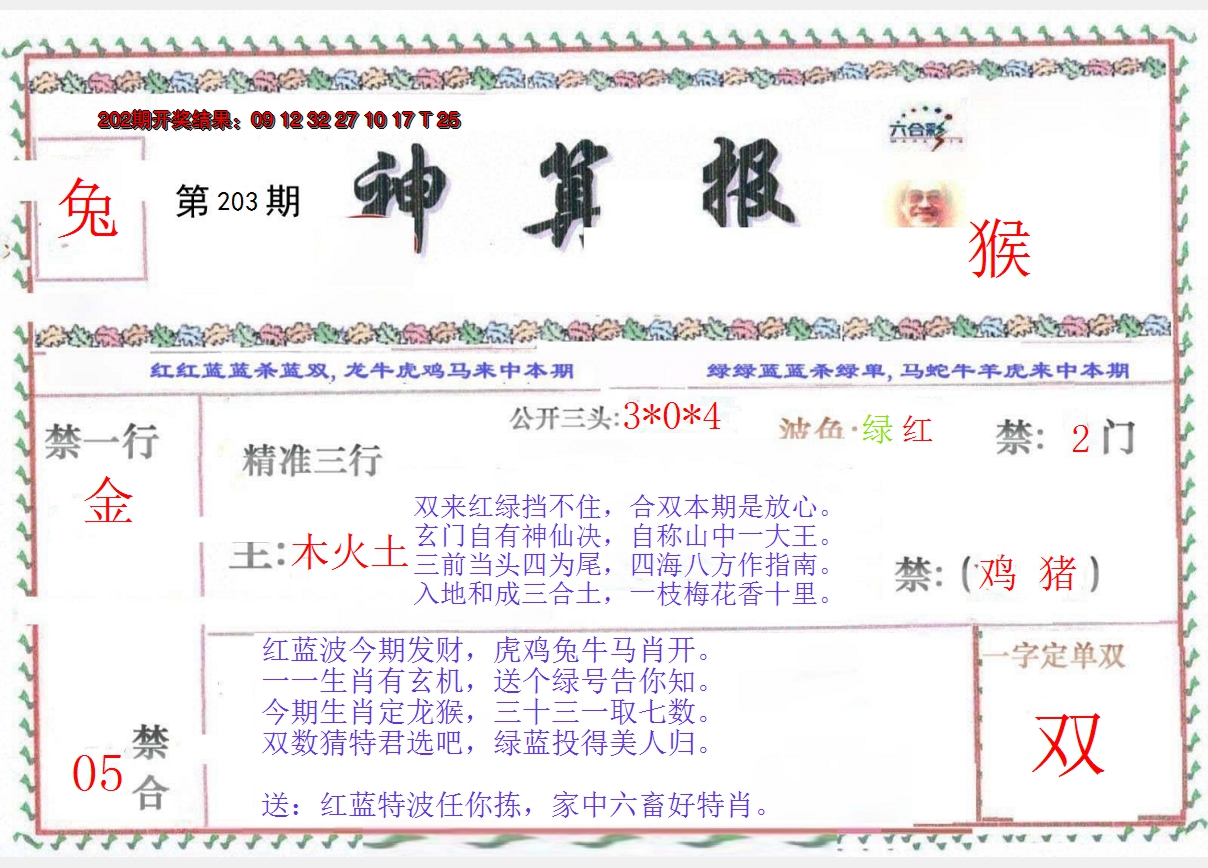 202期开奖结果：09 12 32 27 10 17 T 25
六合彩
兔
第 203 期
神算报
猴
红红蓝蓝杀蓝双,龙牛虎鸡马来中本期
绿绿蓝蓝杀绿单,马蛇牛羊虎来中本期
禁一行
金
公开三头:3*0*4
波色:绿 红
禁: 2 门
精准三行
主:木火土
双来红绿挡不住，合双本期是放心。
玄门自有神仙决，自称山中一大王。
三前当头四为尾，四海八方作指南。
入地和成三合土，一枝梅花香十里。
禁:(鸡 猪)
红蓝波今期发财，虎鸡兔牛马肖开。
一一生肖有玄机，送个绿号告你知。
今期生肖定龙猴，三十三一取七数。
双数猜特君选吧，绿蓝投得美人归。
送：红蓝特波任你拣，家中六畜好特肖。
05
禁合
一字定单双
双